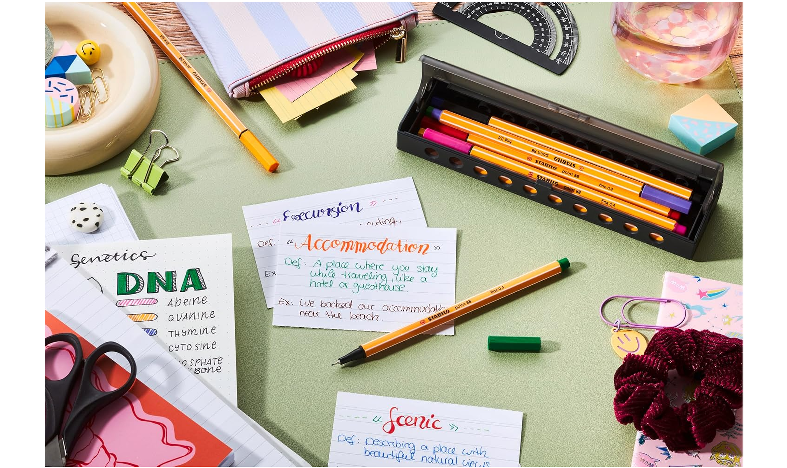 Genetics
DNA
ADENINE
GUANINE
THYMINE
CYTOSINE
Excursion
Def
Ex
"Accommodation"
Def: A place where you stay
while traveling, like a
hotel or guesthouse.
Ex: We booked our accommodation
near the beach.
STABILO
STABILO
STABILO
"Scenic"
Def: Describing a place with
beautiful natural views